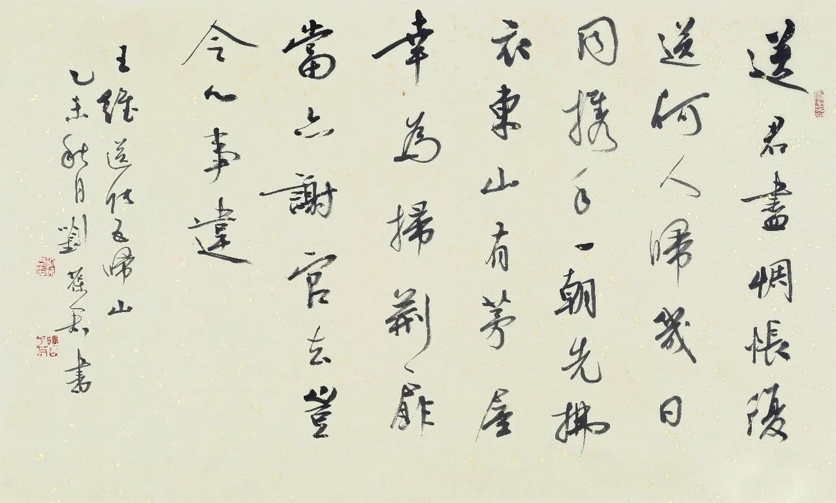 送君盡惆悵復
送何人歸幾日
同攜手一朝先拂
衣東山有茅屋
幸為掃荊扉
當亦謝官去豈
令心事違
王維送張五歸山
乙未秋月劉葆君書